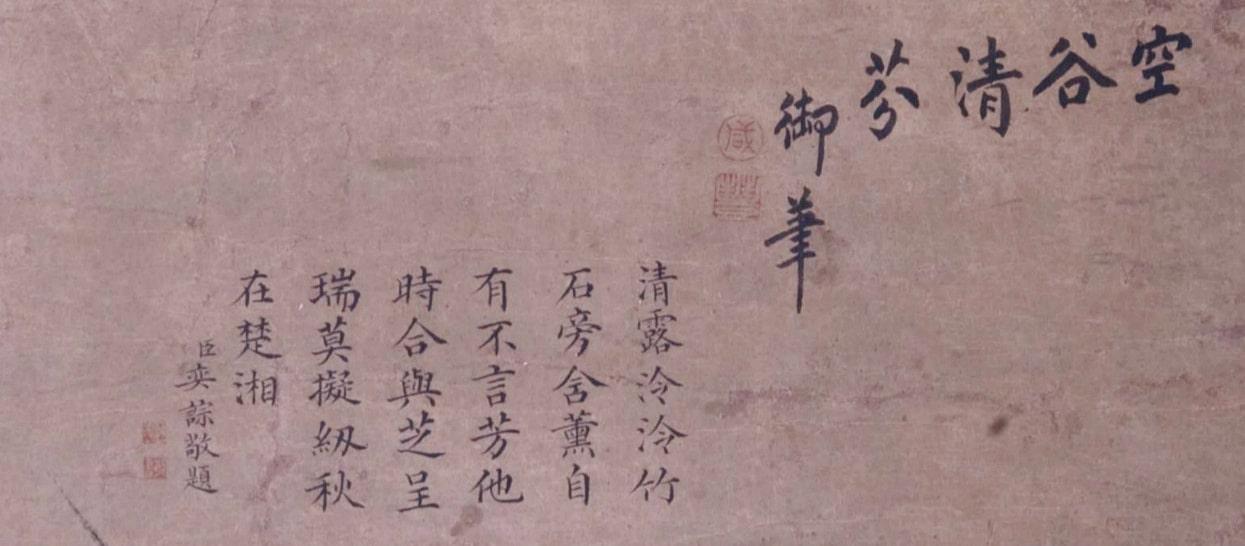 空谷清芬
御筆
咸
清露泠泠竹
石旁含薰自
有不言芳他
時合與芝呈
瑞莫擬紉秋
在楚湘
臣奕誴敬題